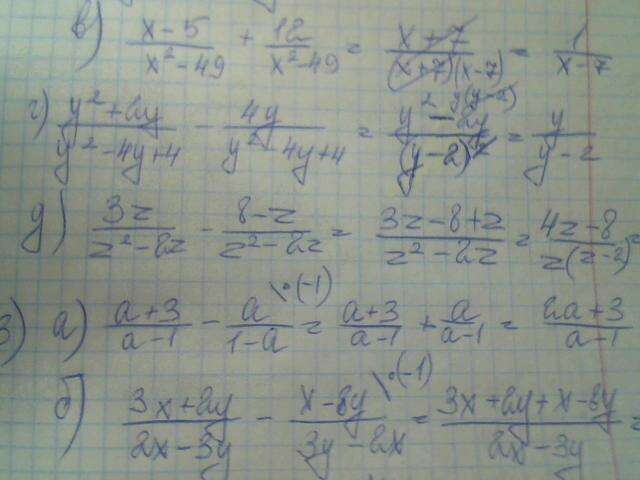 в) (x-5)/(x²-49) + 12/(x²-49) = (x+7)/((x+7)(x-7)) = 1/(x-7)
г) (y²+2y)/(y²-4y+4) - 4y/(y²-4y+4) = (y²-2y)/(y-2)² y(y-2) = y/(y-2)
д) 3z/(z²-2z) - (8-z)/(z²-2z) = (3z-8+z)/(z²-2z) = (4z-8)/(z(z-2)) =
3) а) (a+3)/(a-1) - a/(1-a) \·(-1) = (a+3)/(a-1) + a/(a-1) = (2a+3)/(a-1)
б) (3x+2y)/(2x-3y) - (x-8y)/(3y-2x) \·(-1) = (3x+2y+x-8y)/(2x-3y) =